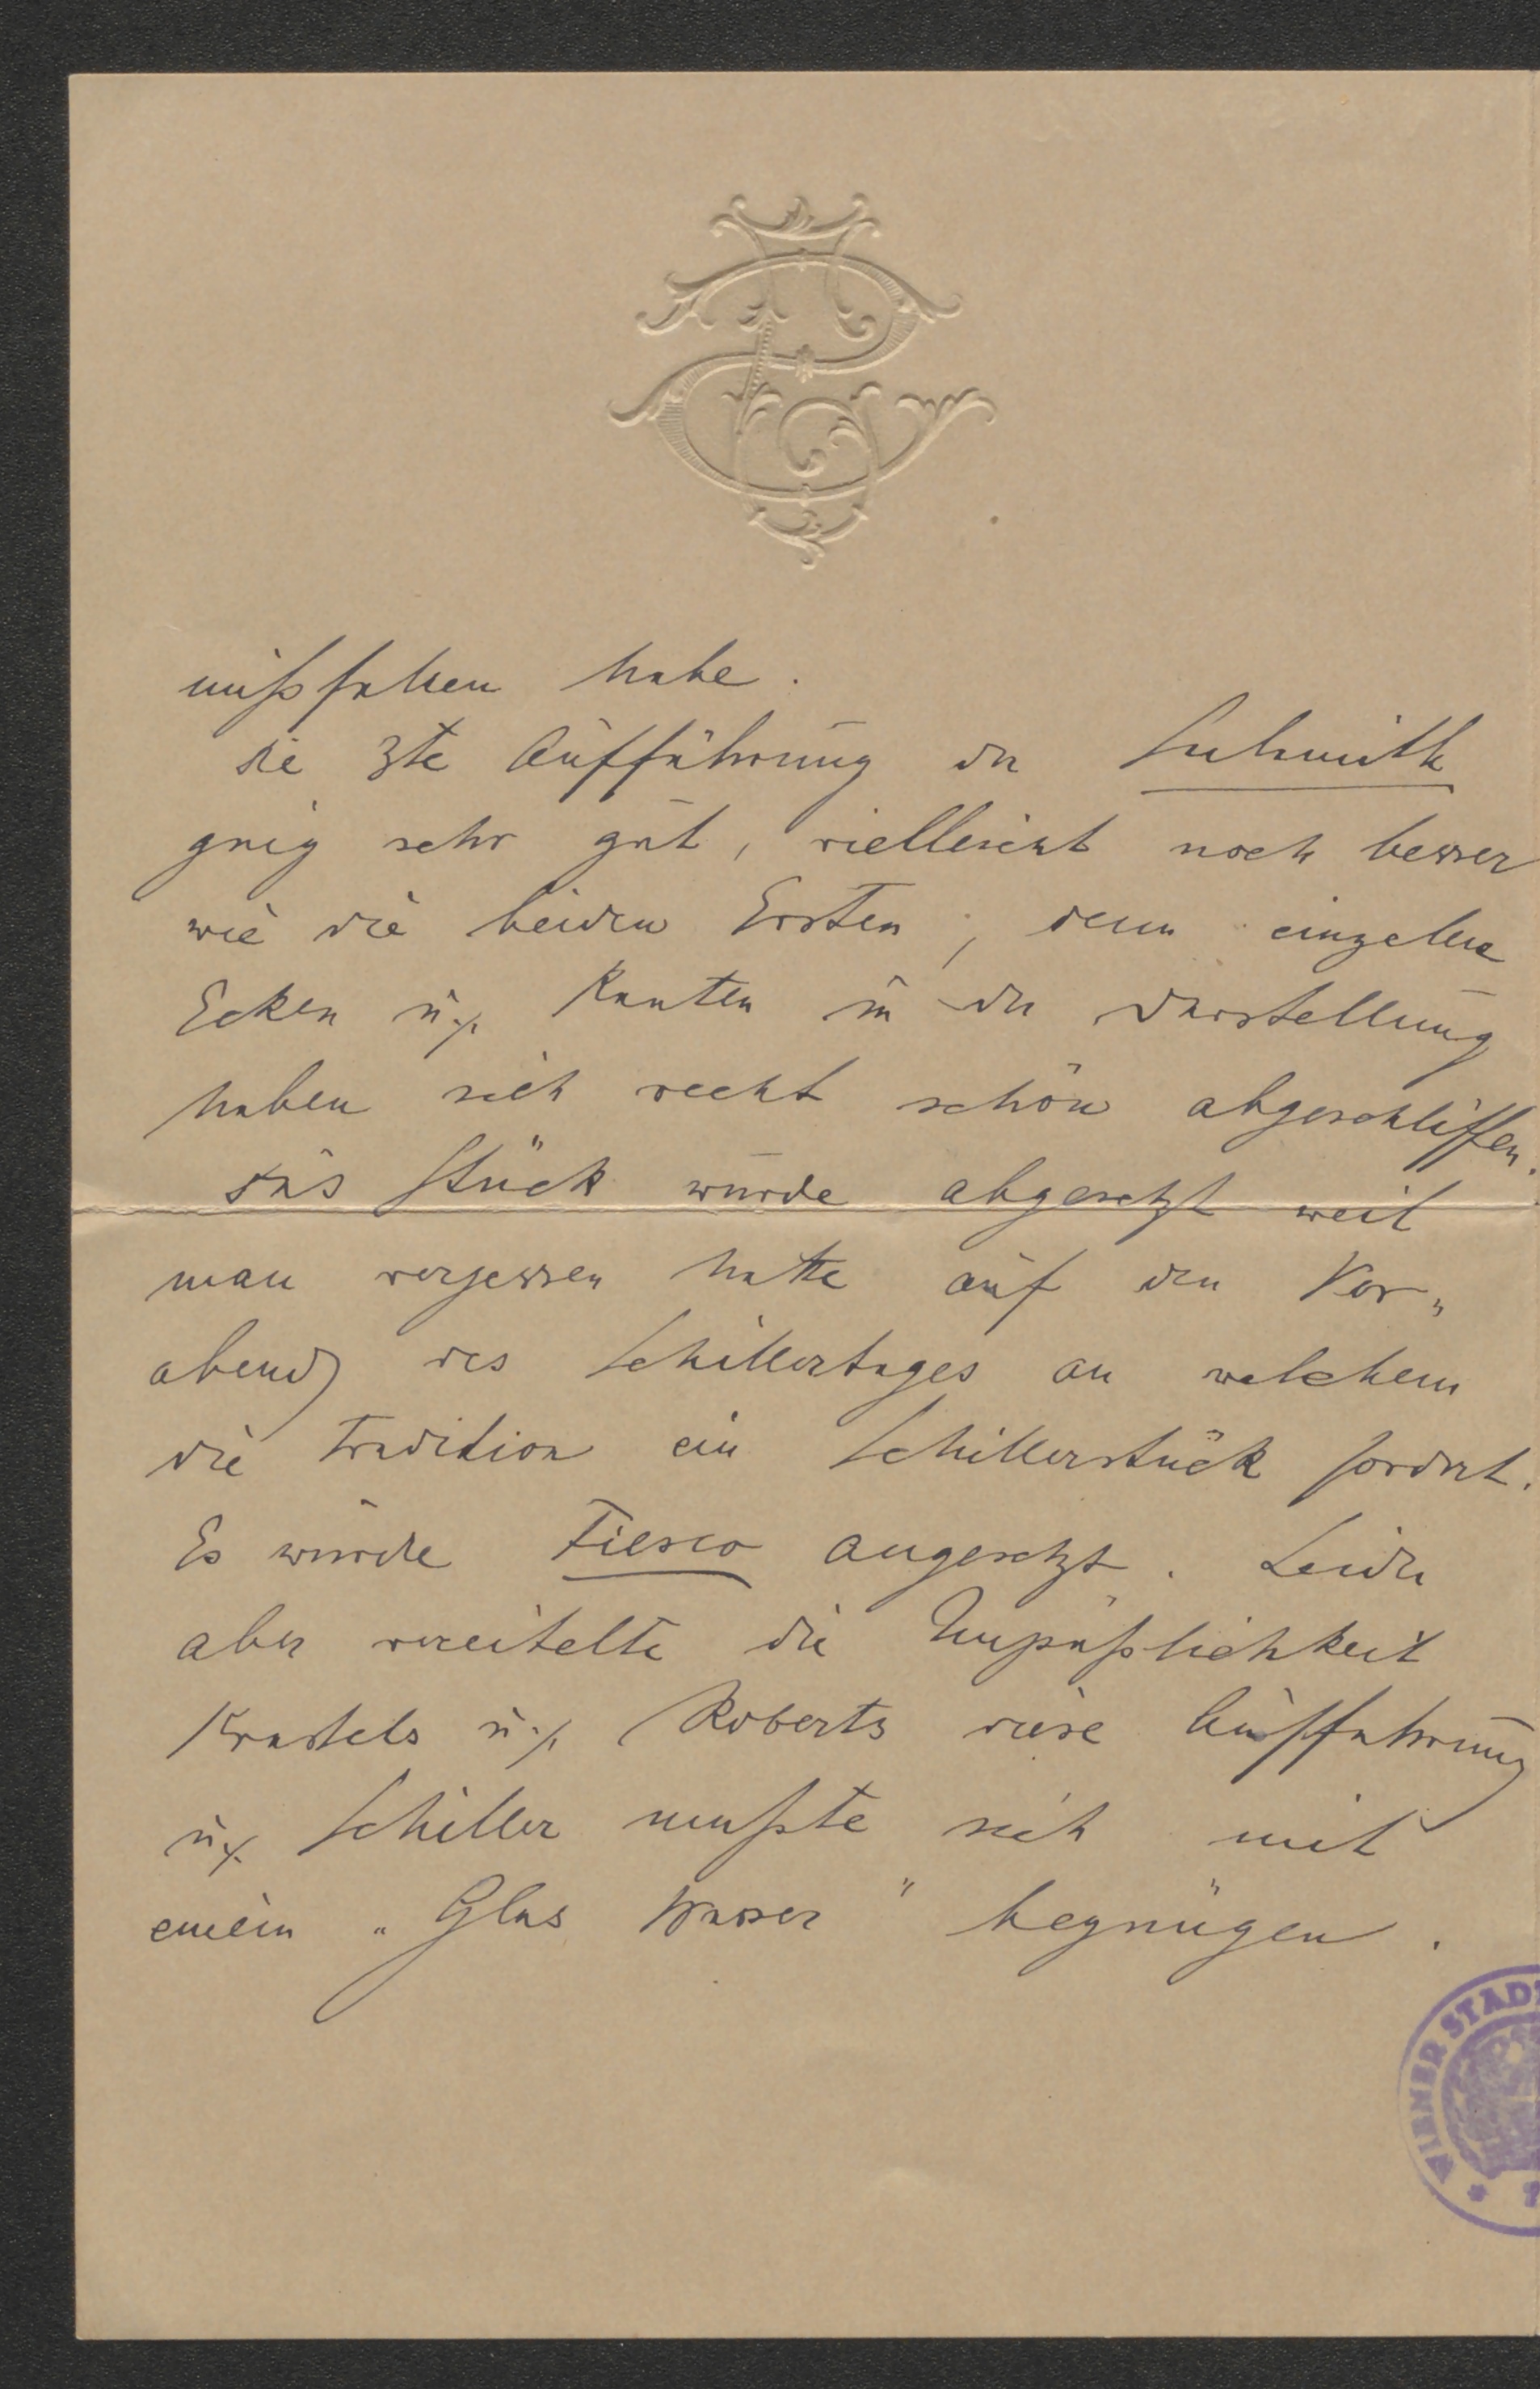 mißfallen habe.
Die 3te Aufführung der Sulamith
ging sehr gut, vielleicht noch besser
wie die beiden Ersten, denn einzelne
Ecken u. Kanten in der Darstellung
haben sich recht schön abgeschliffen.
Das Stück wurde abgesetzt weil
man vergessen hatte auf den Vor„
abend des Schillertages an welchem
die Tradition ein Schillerstück fordert.
Es wurde Fiesco angesetzt. Leider
aber vereitelte die Unpäßlichkeit
Krastels u. Roberts diese Aufführung
u. Schiller mußte sich mit
einem „Glas Wasser" begnügen.
WIENER STAD